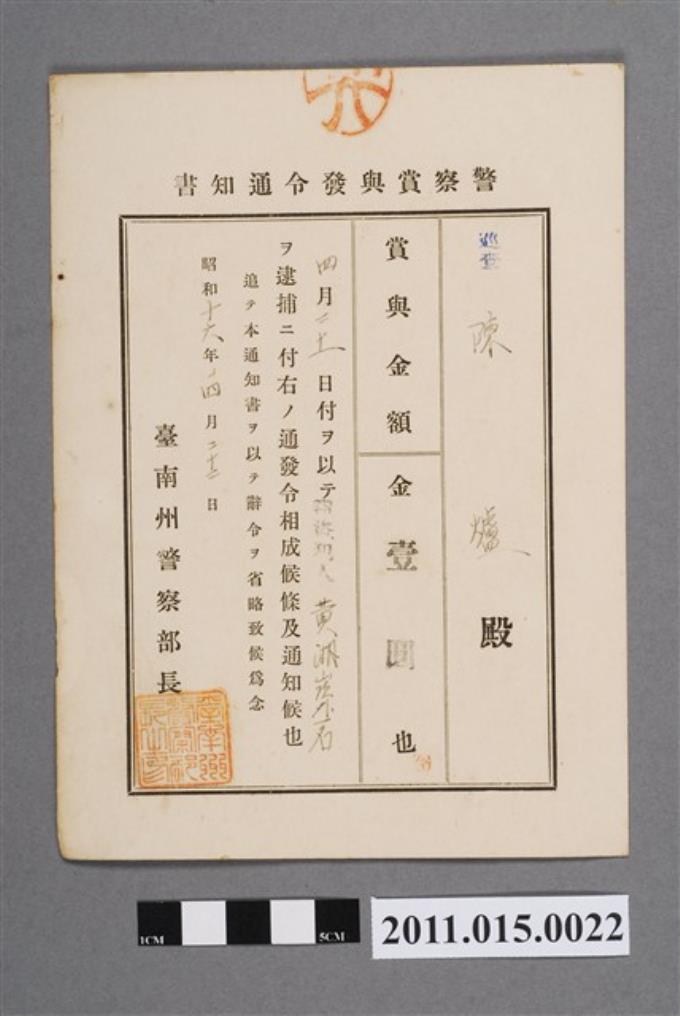 警察賞與發令通知書
巡查 陳 爐 殿
賞與金額 金壹圓也
四月二十一日付ヲ以テ 犯人黃湖崟外一名
ヲ逮捕ニ付右ノ通發令相成候條及通知候也
追テ本通知書ヲ以テ辭令ヲ省略致候爲念
昭和十六年四月二十二日
臺南州警察部長
1CM 5CM
2011.015.0022